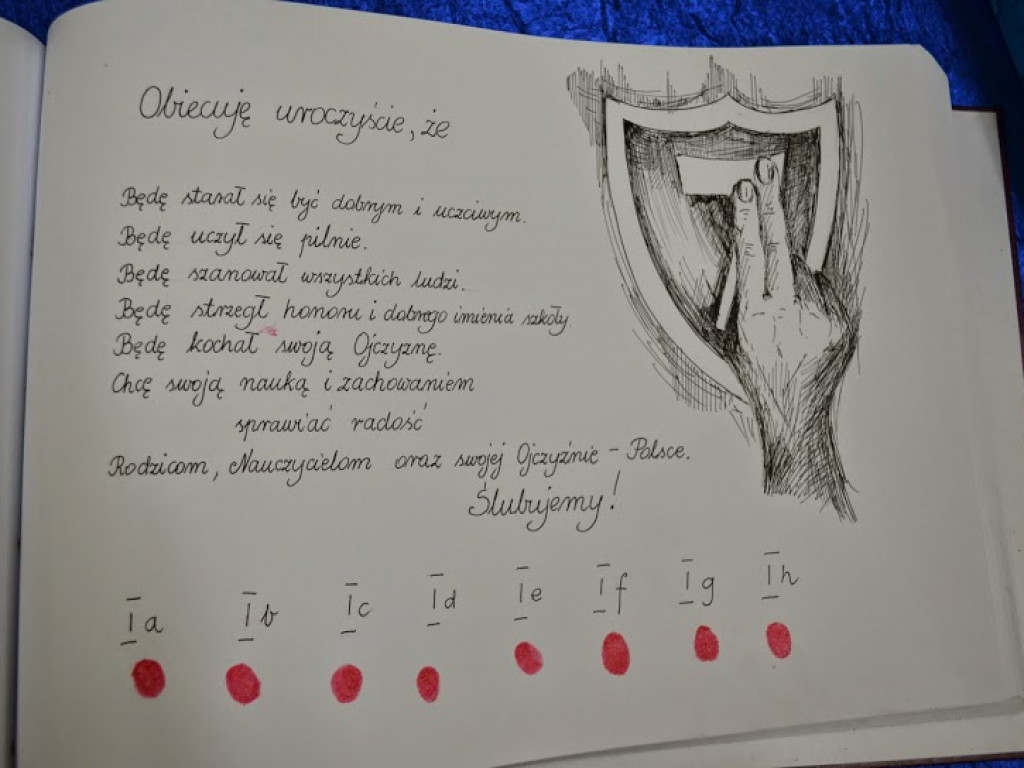 Obiecuję uroczyście, że
Będę starał się być dobrym i uczciwym.
Będę uczył się pilnie.
Będę szanował wszystkich ludzi.
Będę strzegł honoru i dobrego imienia szkoły
Będę kochał swoją Ojczyznę.
Chcę swoją nauką i zachowaniem
sprawiać radość
Rodzicom, Nauczycielom oraz swojej Ojczyźnie - Polsce.
Ślubujemy!
I a I b I c I d I e I f I g I h